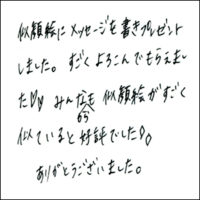 似顔絵にメッセージを書きプレゼント
しました。すごくよろこんでもらえまし
た♡♡ みんなも 似顔絵がすごく
似ていると好評でした♪。
ありがとうございました。